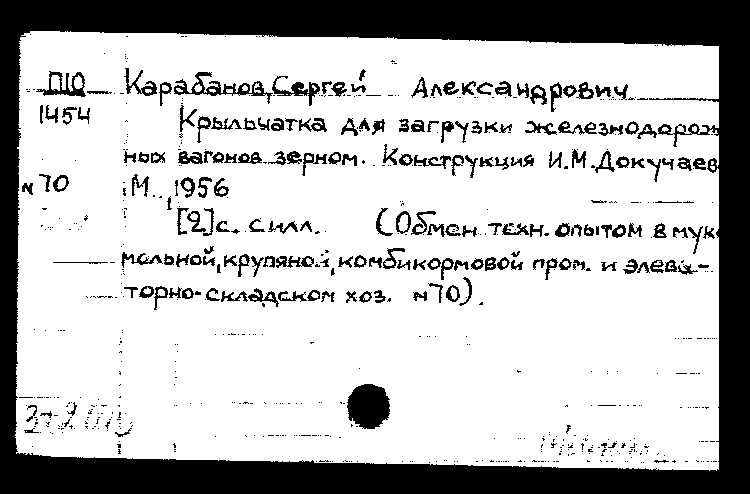 П10 Карабанов, Сергей Александрович
1454
Крыльчатка для загрузки железнодорож
ных вагонов зерном. Конструкция И.М.Докучаев
№70 М., 1956
[2]с. с илл. (Обмен техн. опытом в мук
мольной, крупяной, комбикормовой пром. и элева-
торно-складском хоз. №70).